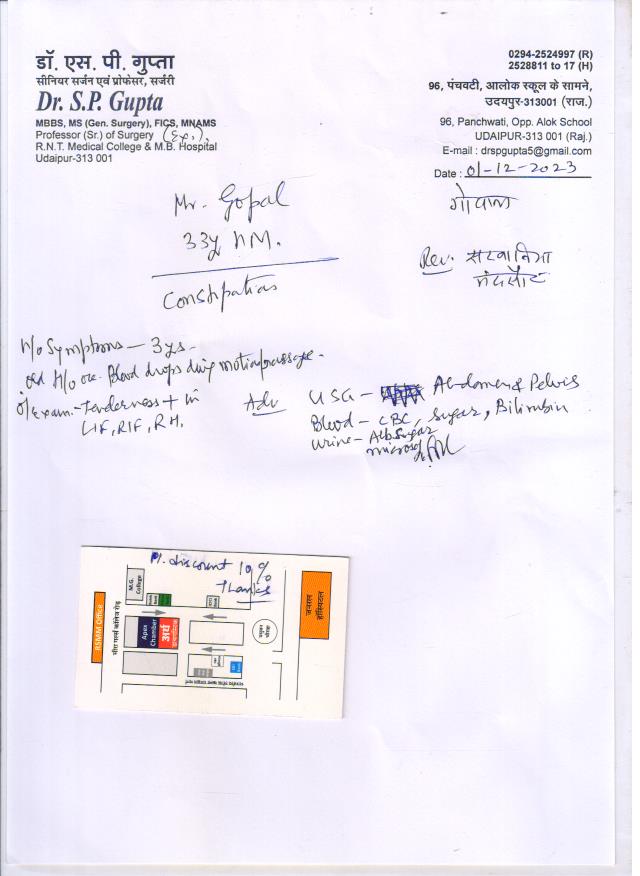 डॉ. एस. पी. गुप्ता
सीनियर सर्जन एवं प्रोफेसर, सर्जरी
Dr. S.P. Gupta
MBBS, MS (Gen. Surgery), FICS, MNAMS
Professor (Sr.) of Surgery (Ex.)
R.N.T. Medical College & M.B. Hospital
Udaipur-313 001
0294-2524997 (R)
2528811 to 17 (H)
96, पंचवटी, आलोक स्कूल के सामने,
उदयपुर-313001 (राज.)
96, Panchwati, Opp. Alok School
UDAIPUR-313 001 (Raj.)
E-mail : drspgupta5@gmail.com
Date : 01-12-2023
Mr. Gopal
33y
Constipation
गोपाल
H/o Symptoms - 3 ys.
H/o Blood drops passage.
O/Exam. - Tenderness + in
LIF, RIF, RH.
Adv
USG - Abdomen & Pelvis
Blood - CBC, Sugar, Bilirubin
Urine - Alb Sugar
Pl. discount 10%
Thanks
M.G. College
RSMM Office
Apex Chamber
अर्थ
डायग्नोस्टिक
जनाना हॉस्पिटल